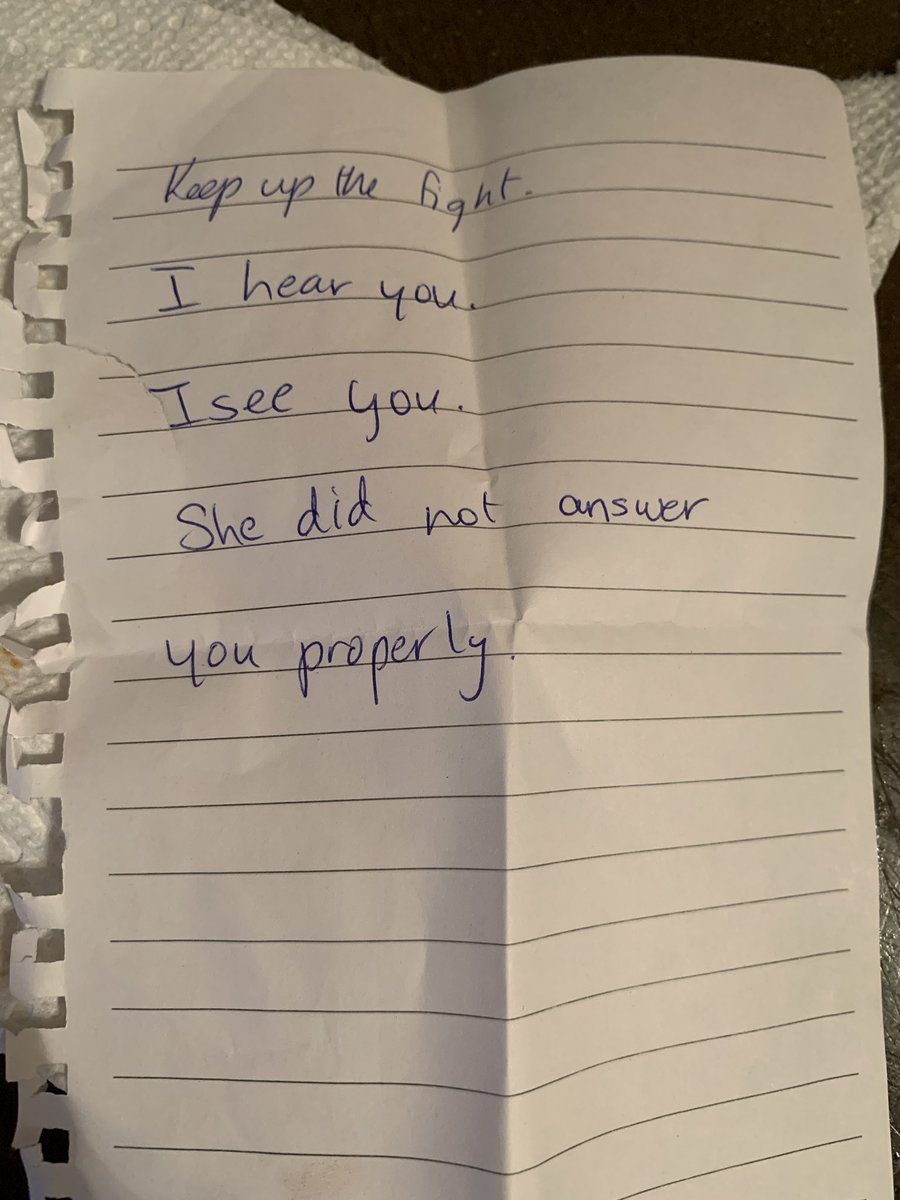 Keep up the fight.
I hear you.
I see you.
She did not answer
you properly.